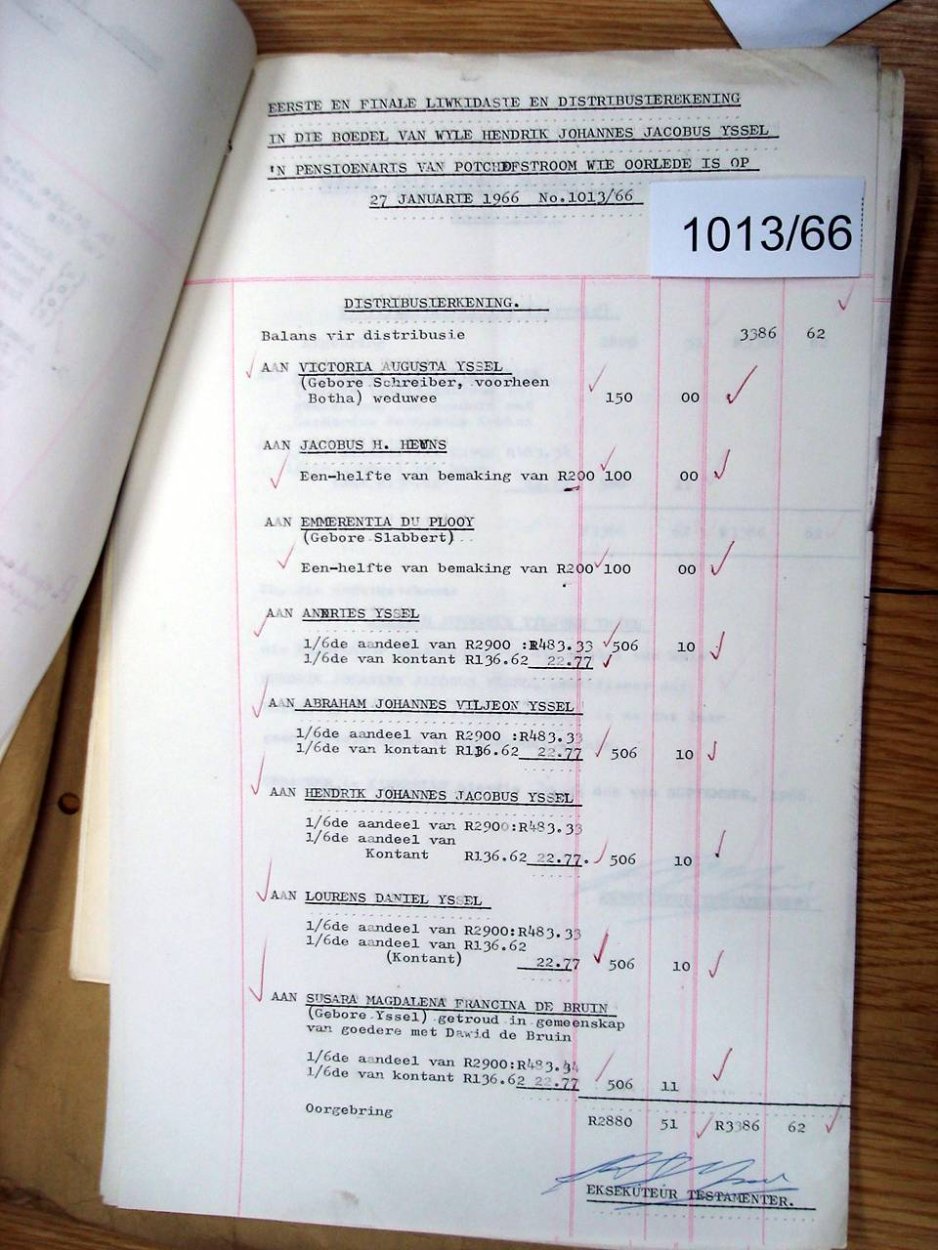 EERSTE EN FINALE LIWKIDASIE EN DISTRIBUSIEREKENING
IN DIE BOEDEL VAN WYLE HENDRIK JOHANNES JACOBUS YSSEL
'N PENSIOENARIS VAN POTCHEFSTROOM WIE OORLEDE IS OP
27 JANUARIE 1966 No.1013/66
1013/66
DISTRIBUSIERKENING.
Balans vir distribusie 3386 62
AAN VICTORIA AUGUSTA YSSEL
(Gebore Schreiber, voorheen
Botha) weduwee 150 00
AAN JACOBUS H. HEUNS
Een-helfte van bemaking van R200 100 00
AAN EMMERENTIA DU PLOOY
(Gebore Slabbert)
Een-helfte van bemaking van R200 100 00
AAN ANDRIES YSSEL
1/6de aandeel van R2900 :R483.33 506 10
1/6de van kontant R136.62 22.77
AAN ABRAHAM JOHANNES VILJEON YSSEL
1/6de aandeel van R2900 :R483.33
1/6de van kontant R136.62 22.77 506 10
AAN HENDRIK JOHANNES JACOBUS YSSEL
1/6de aandeel van R2900:R483.33
1/6de aandeel van
Kontant R136.62 22.77. 506 10
AAN LOURENS DANIEL YSSEL
1/6de aandeel van R2900:R483.33
1/6de aandeel van R136.62
(Kontant) 22.77 506 10
AAN SUSARA MAGDALENA FRANCINA DE BRUIN
(Gebore Yssel) getroud in gemeenskap
van goedere met Dawid de Bruin
1/6de aandeel van R2900:R483.34
1/6de van kontant R136.62 22.77 506 11
Oorgebring R2880 51 R3386 62
EKSEKUTEUR TESTAMENTER.